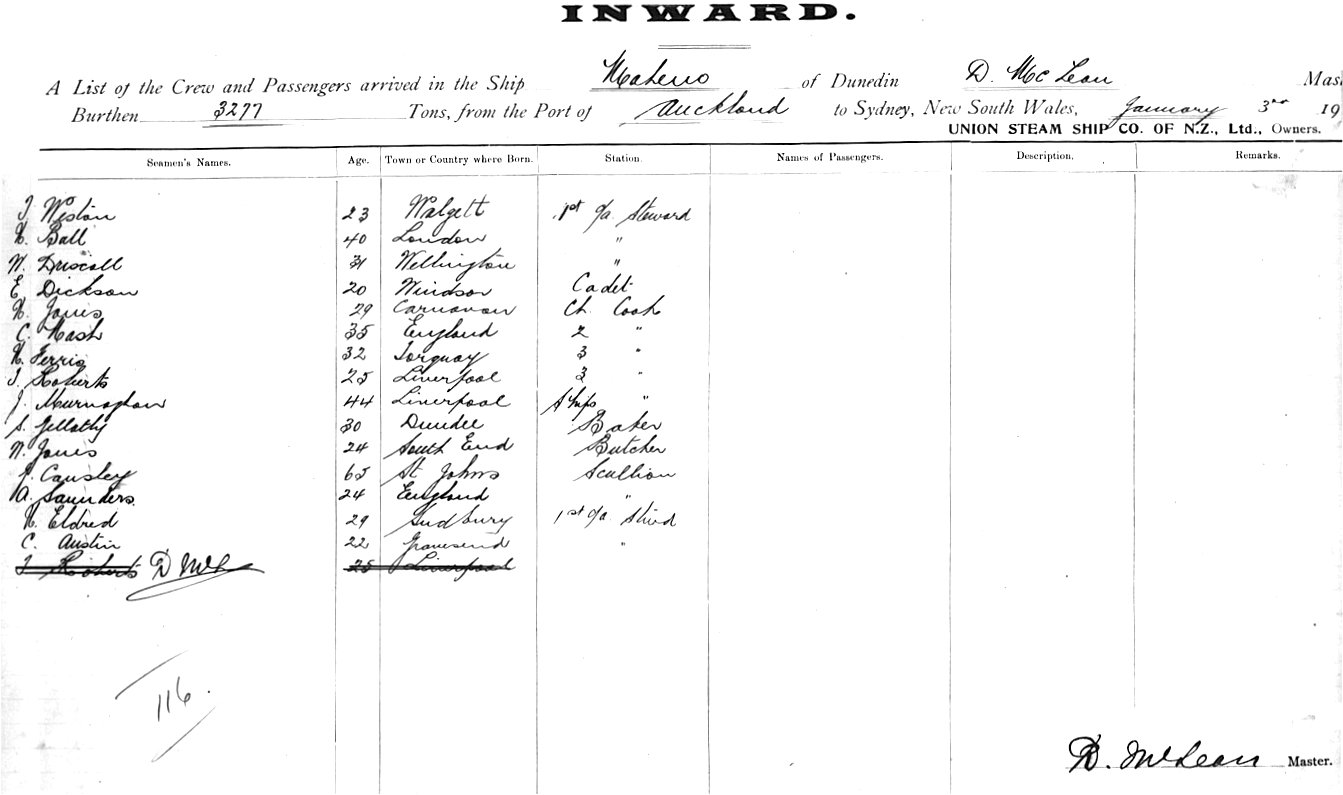 INWARD.
A List of the Crew and Passengers arrived in the Ship Maheno of Dunedin D. McLean Mas
Burthen 3277 Tons, from the Port of Auckland to Sydney, New South Wales, January 3rd 19
UNION STEAM SHIP CO. OF N.Z., Ltd., Owners.
Seamen's Names. Age. Town or Country where Born. Station. Names of Passengers. Description. Remarks.
Weston 23 Walgett 1st Steward
Ball 40 London "
W. Driscoll 31 Wellington "
E. Dickson 20 Windsor Cadet
Jones 29 Carnavon Ch. Cook
C. Nash 35 England 2 "
Ferris 32 Torquay 3 "
Roberts 25 Liverpool 3 "
J. Murnaghan 44 Liverpool Ships "
S. Gellatly 30 Dundee Baker
Jones 24 South End Butcher
Causley 65 St Johns Scullion
A. Saunders. 24 England "
Eldred 29 Sudbury 1st
C. Austin 22 Gravesend "
Roberts D McL 25 Liverpool
116.
D. McLean Master.